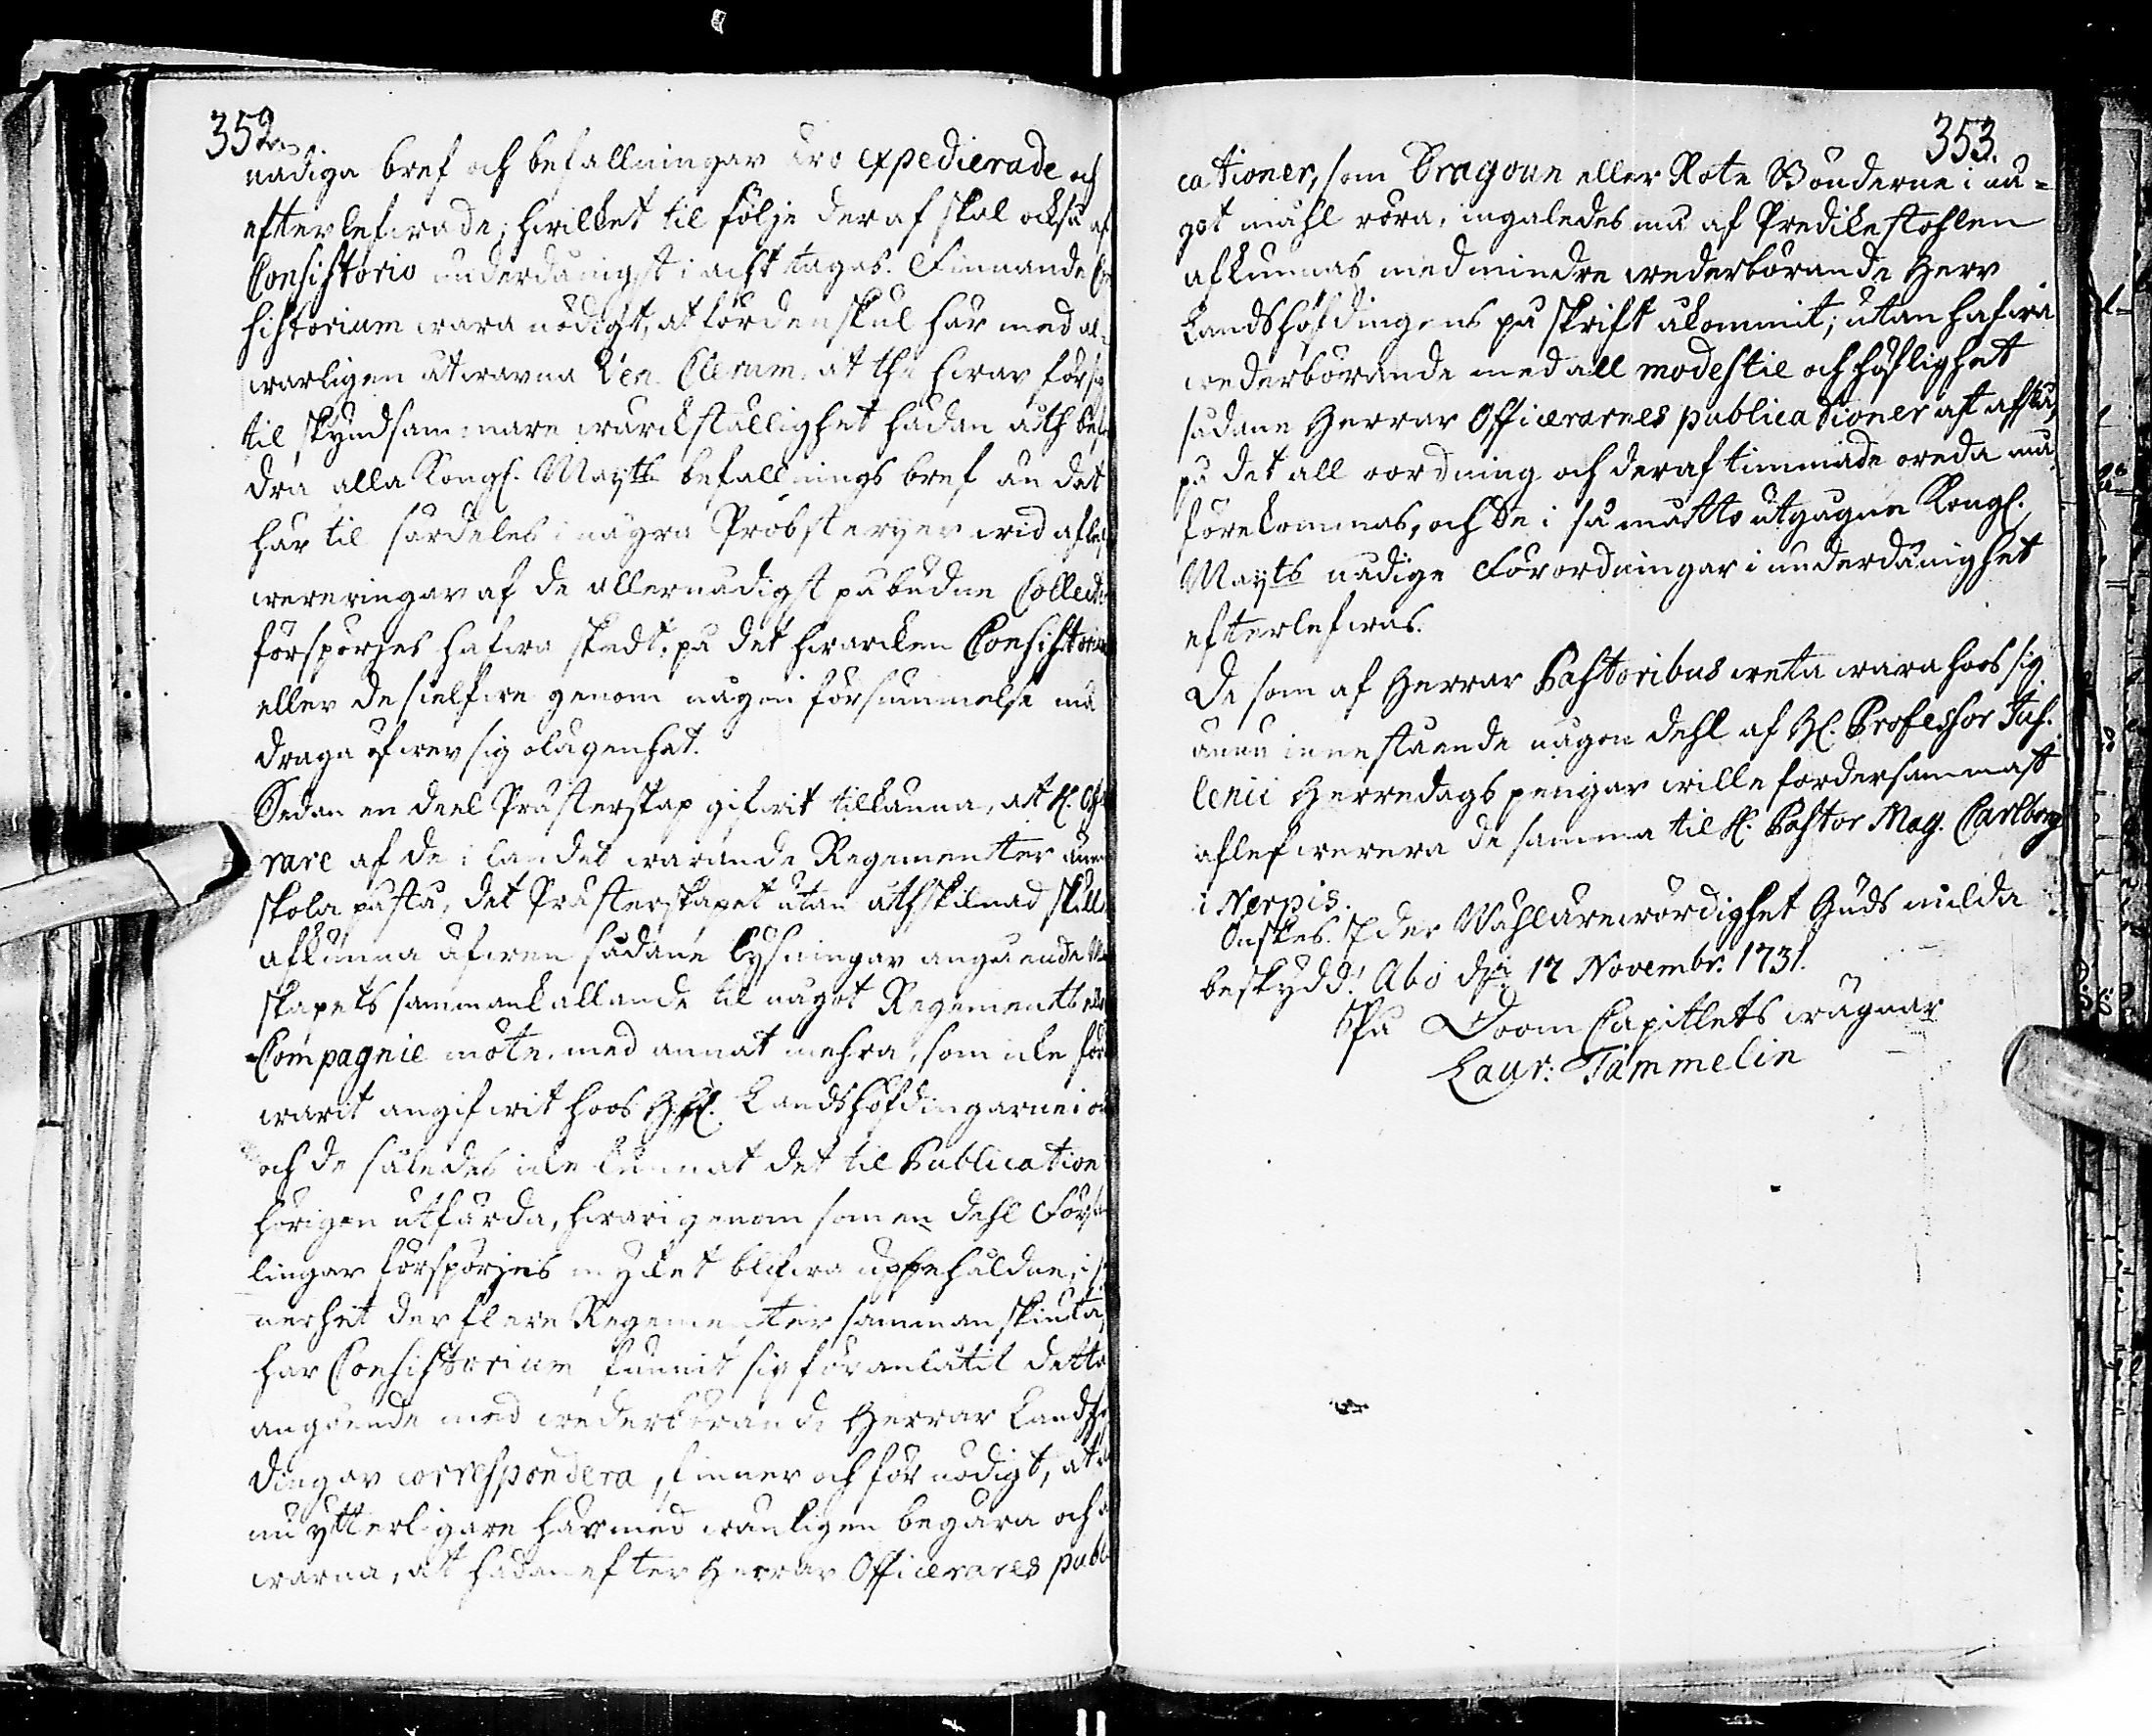 352.
nådiga bref och befallningar äro expedierade och
efterlefwade; hwilket til följe deraf skal också af
Consistorio underdånigst i acht tagas. Finnande Con
sistorium wara nödigt, at fördenskul här med al-
warligen åtwarna Ven. Clerum, at the hwar för sig
til skyndsammare wärckställighet hädan åth befor
dra alla Kongl. Mayts befallnings bref än det
här til särdeles i några Probsterijer wid aflef
wereringar af de allernådigst påbudne Collecter
förspörjes hafwa skedt, på det hwarcken Consistorium
eller de sielfwe genom någon försummelse må
draga öfwer sig olägenhet.
Sedan en deel Prästerskap gifwit tilkänna, at H. Offi
rare af de i landet warande Regementter
skola påstå, det Prästerskapet utan åthskilnad skull
afkunna äfwen sådane lysningar angående
skapets sammankallande til något Regements eller
Compagnie möte, med annat mehra, som icke för
warit angifwit hoos H.H. Landshöfdingarne i
och de således icke kunnat det til Publication
hörigen utfärda, hwarigenom som en dehl Försam
lingar förspörjes mycket blifwa uppehåldne, i
nerhet der flere Regementer sammanskiuta,
har Consistorium funnit sig föranlåtit detta
angående med wederbörande Herrar Landshöf
dingar correspondera, finner och för nödigt, at
nu ytterligare härmed wänligen begära och
warna, at hädanefter Herrar Officerares publi
353.
cationer, som Dragoun eller Rote Bönderne i nå=
got måhl röra, ingaledes må af Predikestohlen
afkunnas med mindre wederbörande Herr
Landshöfdingens påskrift åkommit; utan hafwa
wederbörande med all modestie och höflighet
sådane Herrar Officerarnes publicationer at afslå,
på det all oordning och deraf timmade oreda må
förekommas, och de i så matto utgågne Kongl.
Mayts nådige Förordningar i underdånighet
efterlefwas.
De som af Herrar Pastoribus weta wara hoos sig
ännu innestående någon dehl af H. Professor Has.
lenii Herredags pengar wille fordersammast
aflefwerera de samma til H. Pastor Mag. Carlborg
i Nerpis.
Önskes Eder Wählärewördighet Guds milda
beskydd! Åbo d. 17 Novembr. 1731.
På Doom Capitlets wägnar
Laur: Tammelin